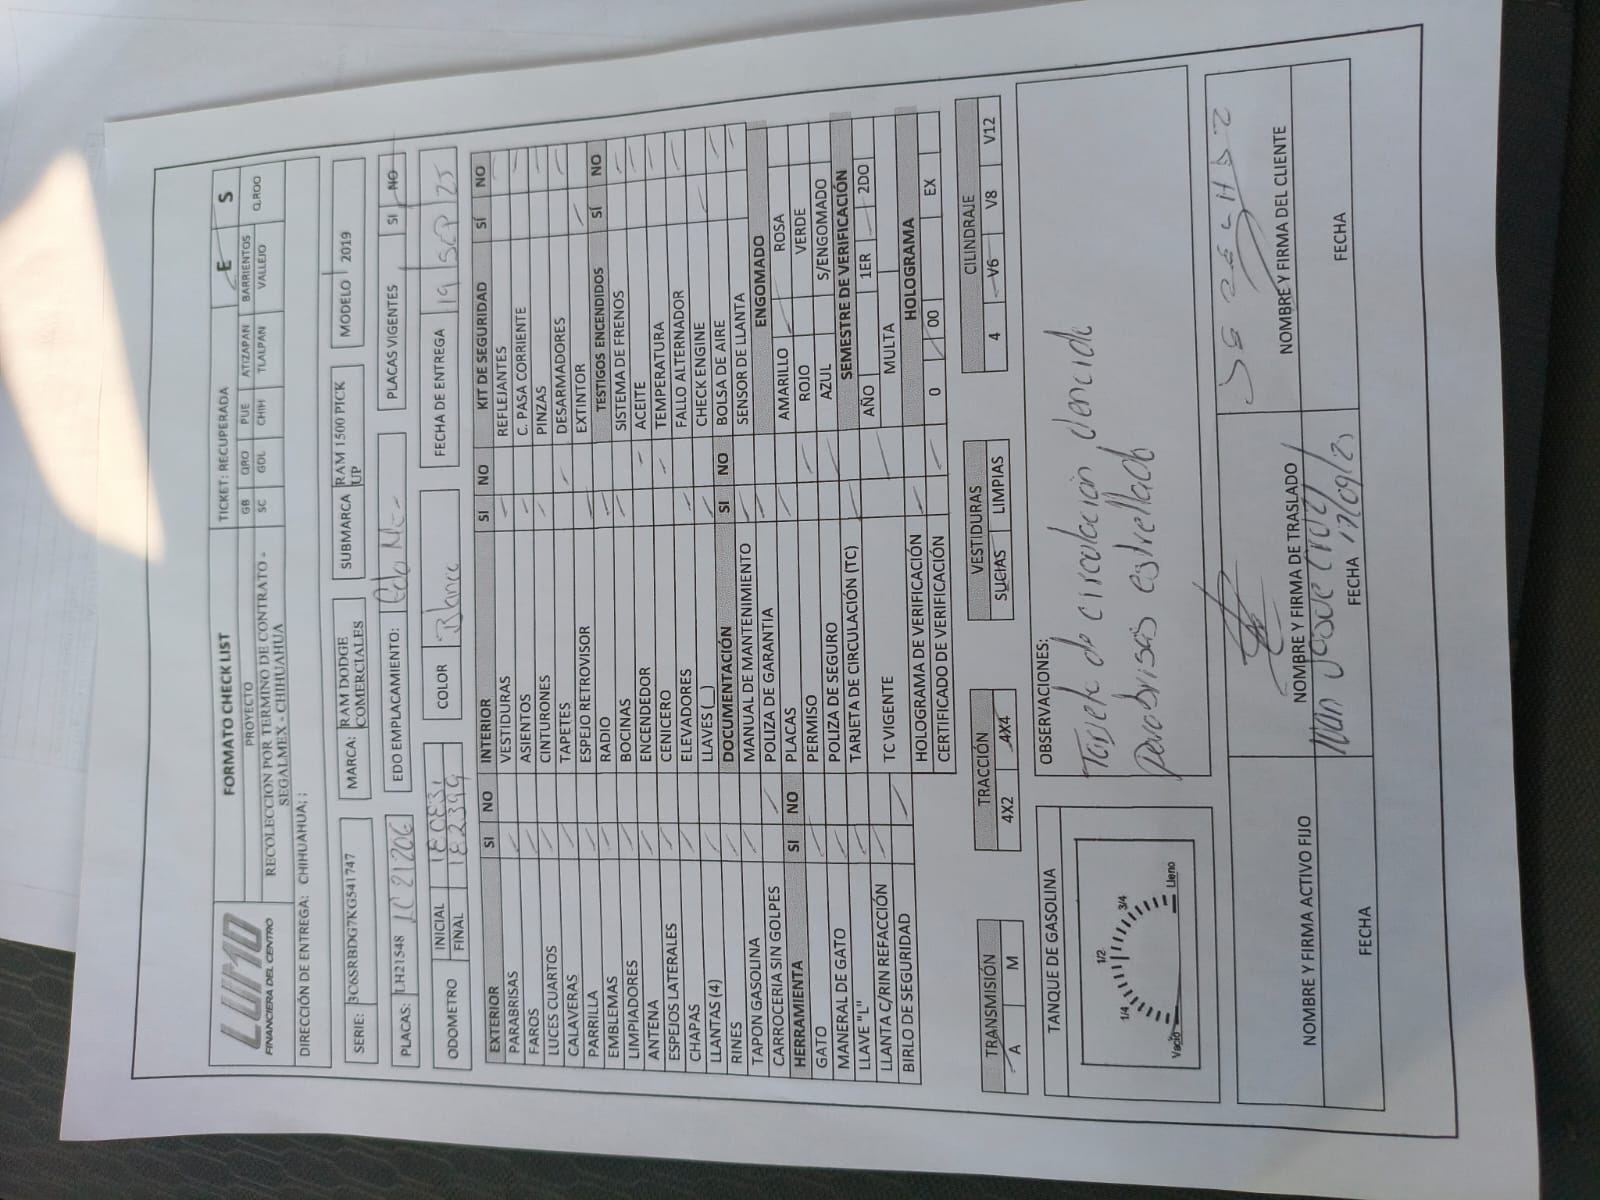 LUMO
FINANCIERA DEL CENTRO
FORMATO CHECK LIST
TICKET: RECUPERADA
E S
PROYECTO
GB QRO PUE ATIZAPAN BARRIENTOS Q.ROO
RECOLECCION POR TERMINO DE CONTRATO -
SEGALMEX - CHIHUAHUA
SC GDL CHIH TLALPAN VALLEJO
DIRECCIÓN DE ENTREGA: CHIHUAHUA; ;
SERIE: 3C6SRBDG7KG541747
MARCA: RAM DODGE COMERCIALES
SUBMARCA RAM 1500 PICK UP
MODELO 2019
PLACAS: LH21548 LC 21206
EDO EMPLACAMIENTO: Edo Mex
PLACAS VIGENTES SI NO
ODOMETRO INICIAL
FINAL 182399
COLOR Blanco
FECHA DE ENTREGA 19 SEP 25
EXTERIOR SI NO
PARABRISAS
FAROS
LUCES CUARTOS
CALAVERAS
PARRILLA
EMBLEMAS
LIMPIADORES
ANTENA
ESPEJOS LATERALES
CHAPAS
LLANTAS (4)
RINES
TAPON GASOLINA
CARROCERIA SIN GOLPES
HERRAMIENTA SI NO
GATO
MANERAL DE GATO
LLAVE "L"
LLANTA C/RIN REFACCIÓN
BIRLO DE SEGURIDAD
INTERIOR SI NO
VESTIDURAS
ASIENTOS
CINTURONES
TAPETES
ESPEJO RETROVISOR
RADIO
BOCINAS
ENCENDEDOR
CENICERO
ELEVADORES
LLAVES (__)
DOCUMENTACIÓN SI NO
MANUAL DE MANTENIMIENTO
POLIZA DE GARANTIA
PLACAS
PERMISO
POLIZA DE SEGURO
TARJETA DE CIRCULACIÓN (TC)
TC VIGENTE
HOLOGRAMA DE VERIFICACIÓN
CERTIFICADO DE VERIFICACIÓN
KIT DE SEGURIDAD SÍ NO
REFLEJANTES
C. PASA CORRIENTE
PINZAS
DESARMADORES
EXTINTOR
TESTIGOS ENCENDIDOS SÍ NO
SISTEMA DE FRENOS
ACEITE
TEMPERATURA
FALLO ALTERNADOR
CHECK ENGINE
BOLSA DE AIRE
SENSOR DE LLANTA
ENGOMADO
AMARILLO ROSA
ROJO VERDE
AZUL S/ENGOMADO
SEMESTRE DE VERIFICACIÓN
AÑO 1ER 2DO
MULTA
HOLOGRAMA
0 00 EX
TRANSMISIÓN
A M
TRACCIÓN
4X2 4X4
VESTIDURAS
SUCIAS LIMPIAS
CILINDRAJE
4 V6 V8 V12
TANQUE DE GASOLINA
Vacio 1/4 1/2 3/4 Lleno
OBSERVACIONES:
Tarjeta de circulación vencida
Parabrisas estrellado
NOMBRE Y FIRMA ACTIVO FIJO
FECHA
NOMBRE Y FIRMA DE TRASLADO
FECHA
NOMBRE Y FIRMA DEL CLIENTE
FECHA